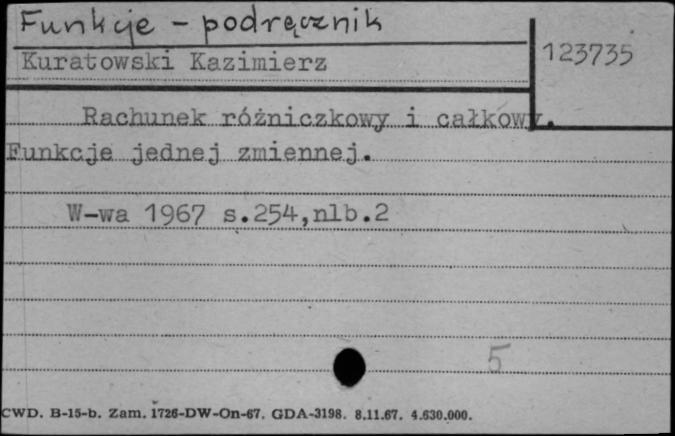 Funkcje - podręcznik
123735
Kuratowski Kazimierz
Rachunek różniczkowy i całkowy.
Funkcje jednej zmiennej.
W-wa 1967 s.254,nlb.2
5
CWD. B-15-b. Zam. 1726-DW-On-67. GDA-3198. 8.11.67. 4.630.000.